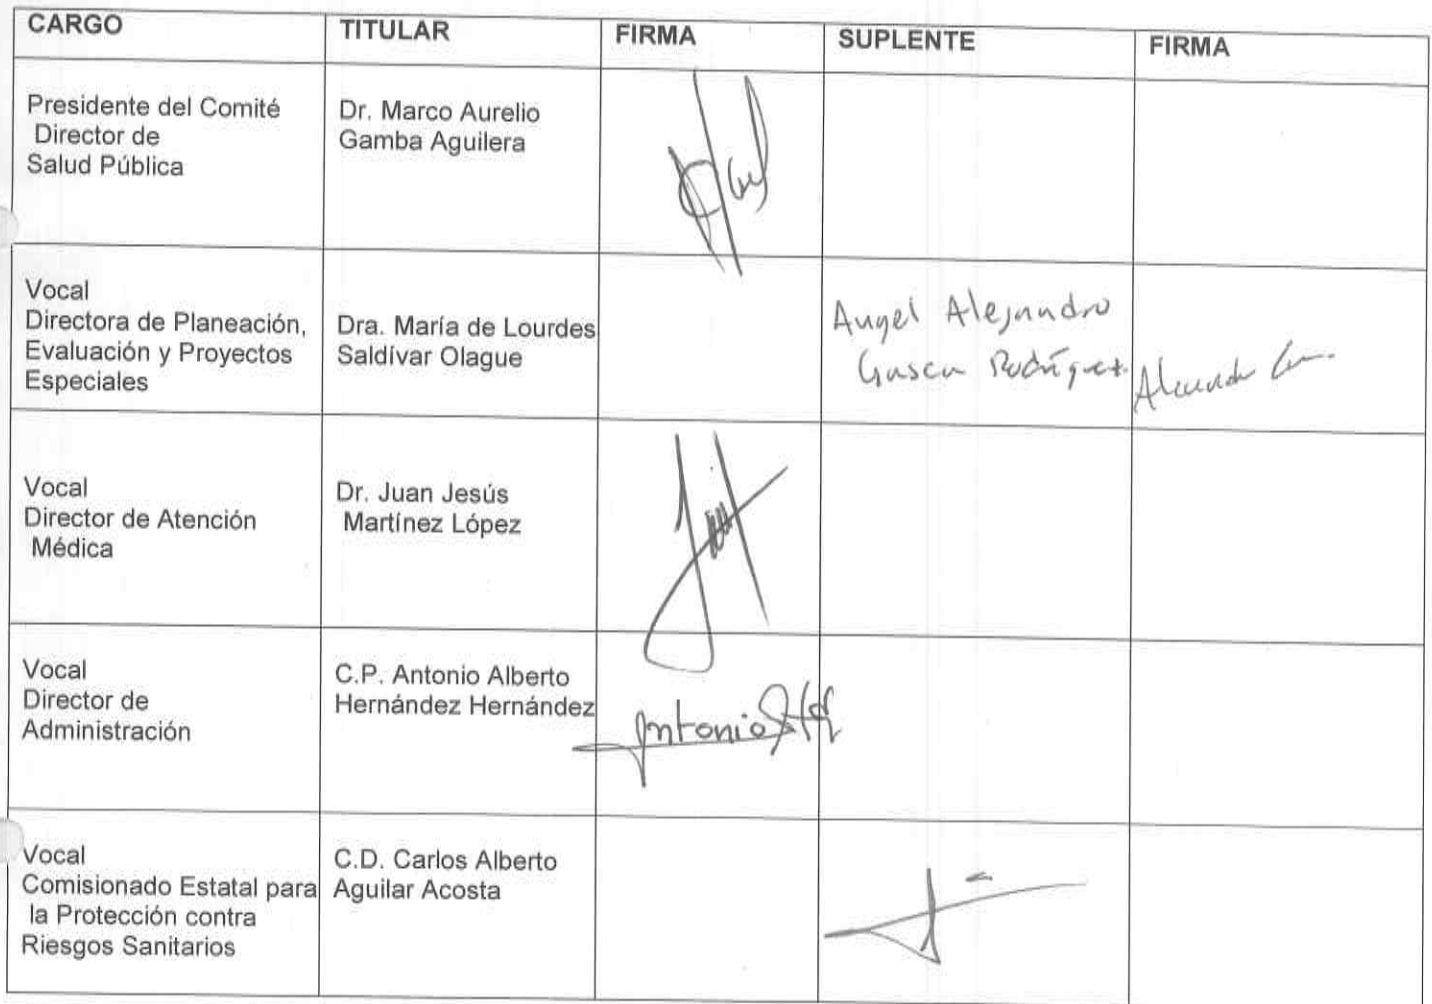 CARGO TITULAR FIRMA SUPLENTE FIRMA
Presidente del Comité
Director de
Salud Pública
Dr. Marco Aurelio
Gamba Aguilera
Vocal
Directora de Planeación,
Evaluación y Proyectos
Especiales
Dra. María de Lourdes
Saldívar Olague
Angel Alejandro
Gasca Rodríguez
Vocal
Director de Atención
Médica
Dr. Juan Jesús
Martínez López
Vocal
Director de
Administración
C.P. Antonio Alberto
Hernández Hernández
Antonio
Vocal
Comisionado Estatal para
la Protección contra
Riesgos Sanitarios
C.D. Carlos Alberto
Aguilar Acosta